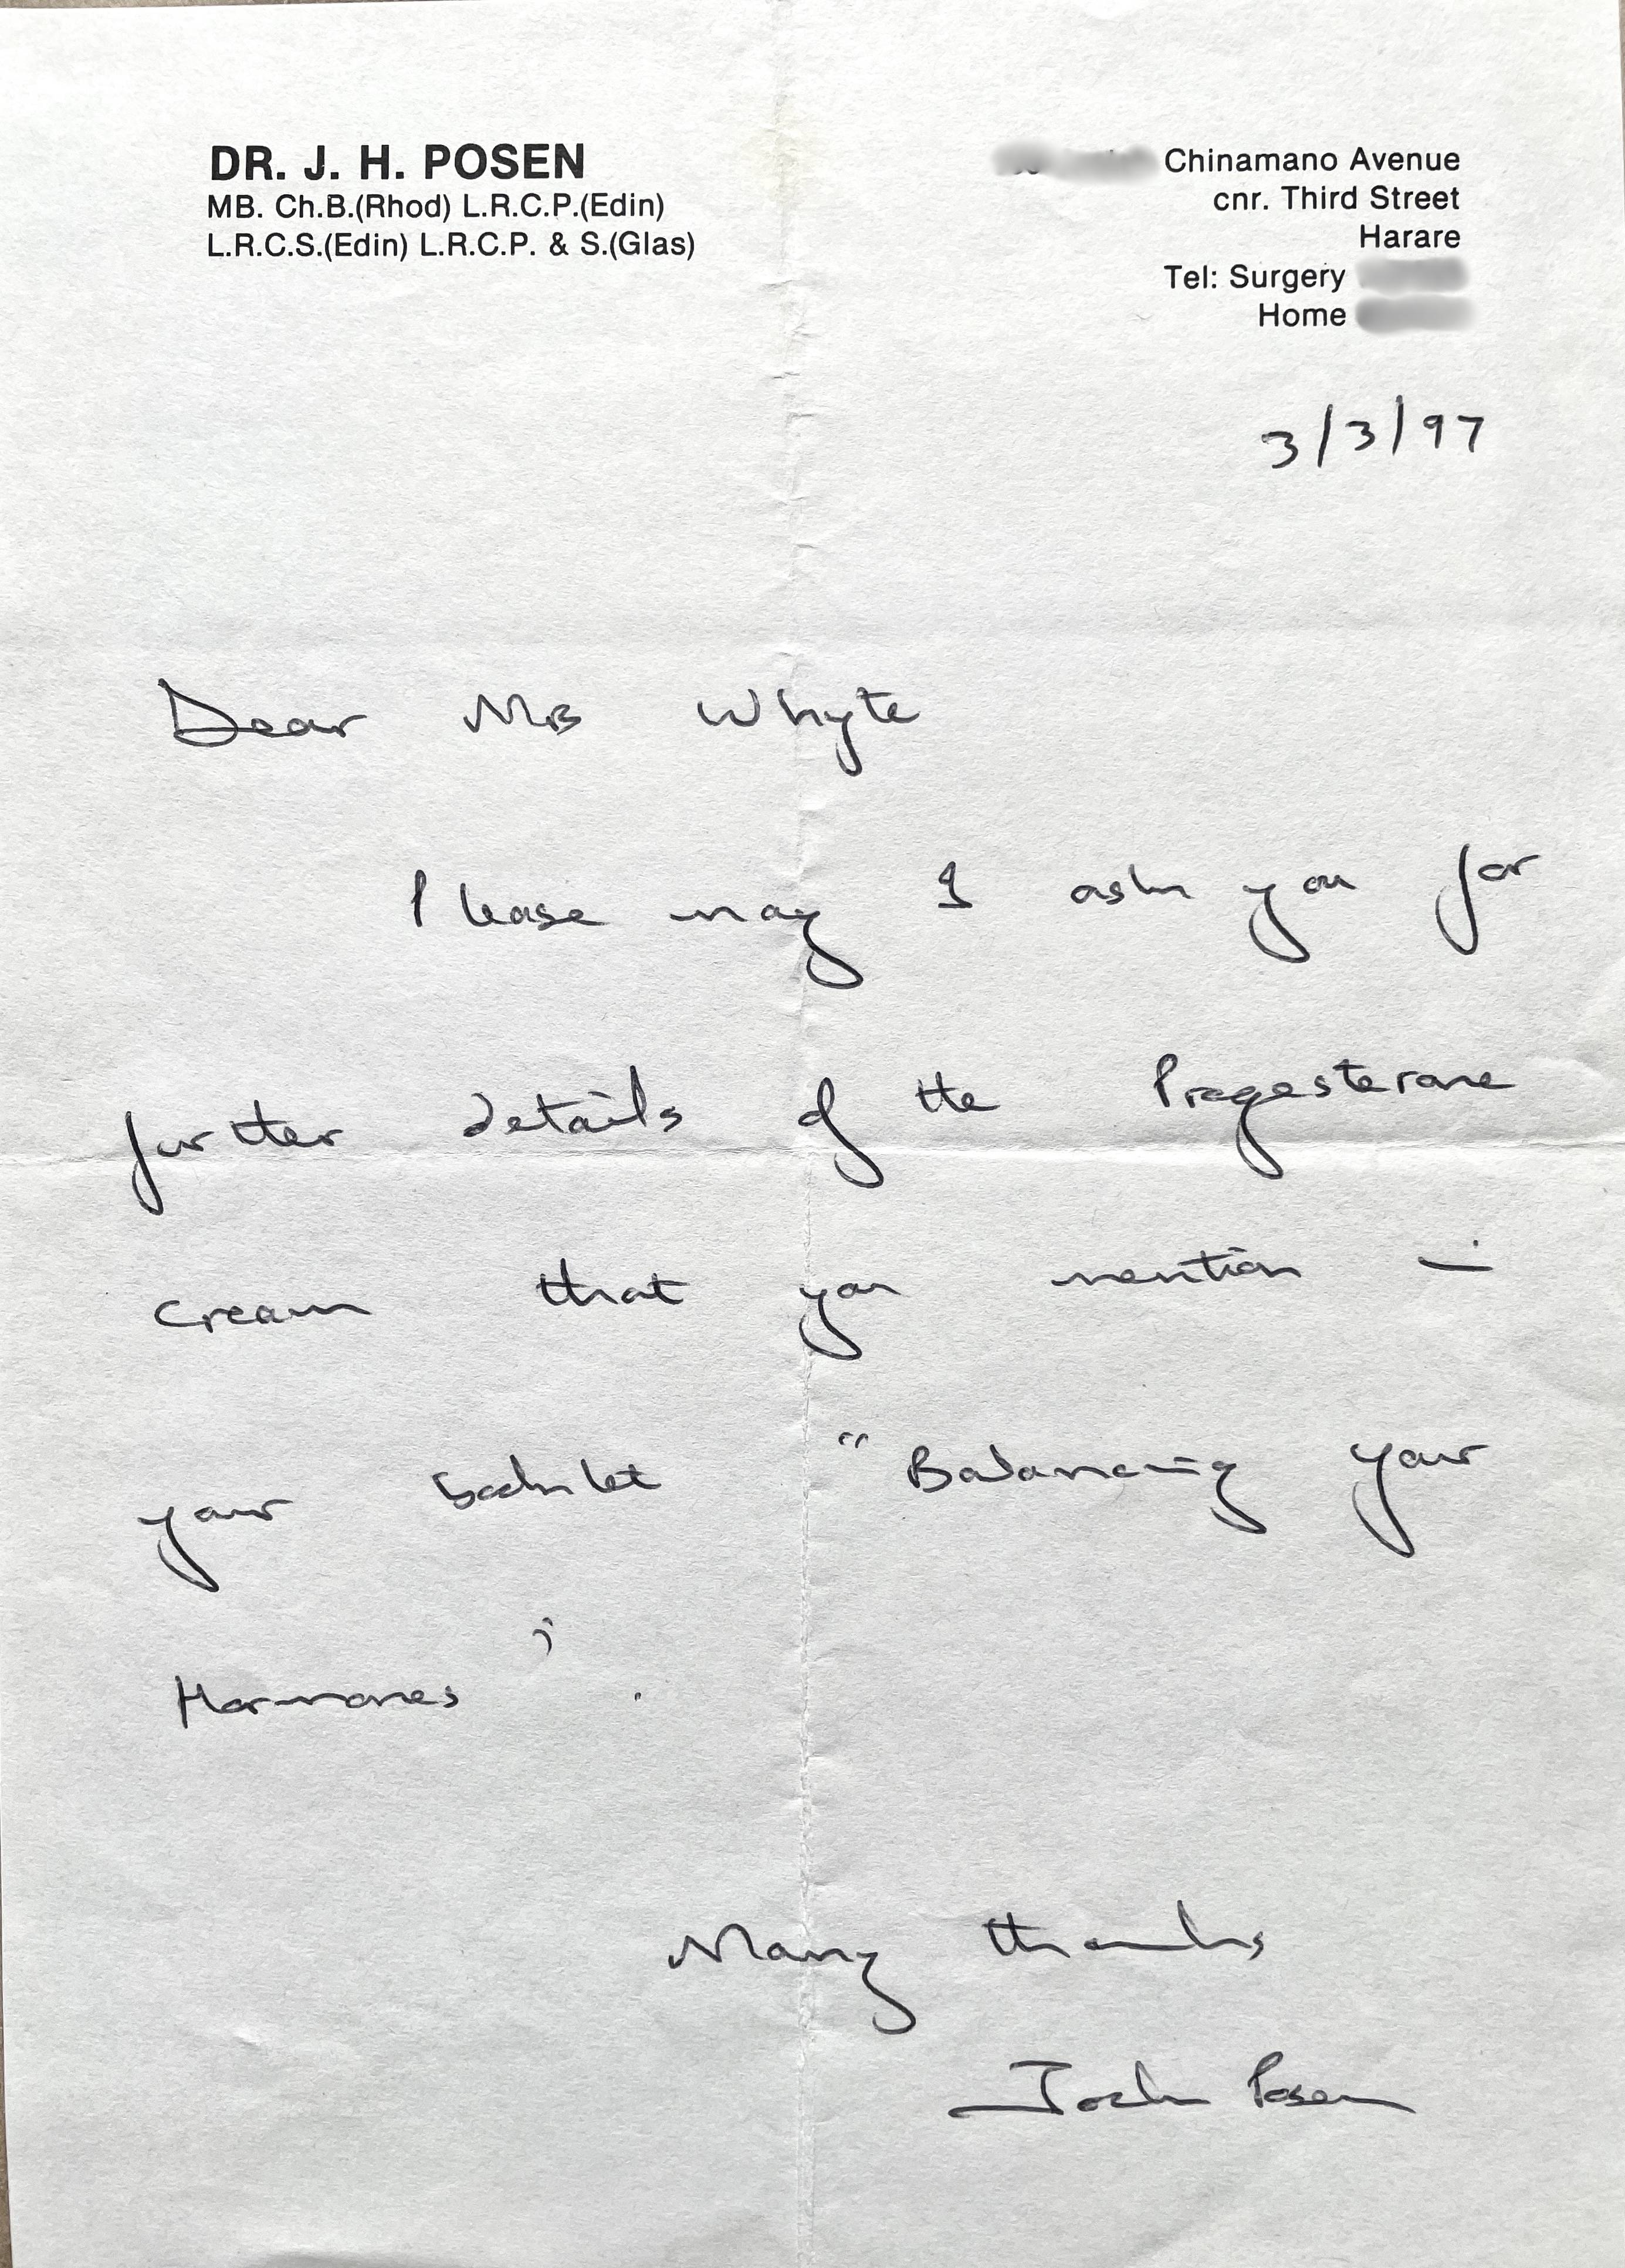 DR. J. H. POSEN
MB. Ch.B.(Rhod) L.R.C.P.(Edin)
L.R.C.S.(Edin) L.R.C.P. & S.(Glas)
Chinamano Avenue
cnr. Third Street
Harare
Tel: Surgery
Home
3/3/97
Dear Mrs Whyte
Please may I ask you for
further details of the Progesterone
cream that you mention in
your booklet "Balancing your
Hormones".
Many thanks
Posen